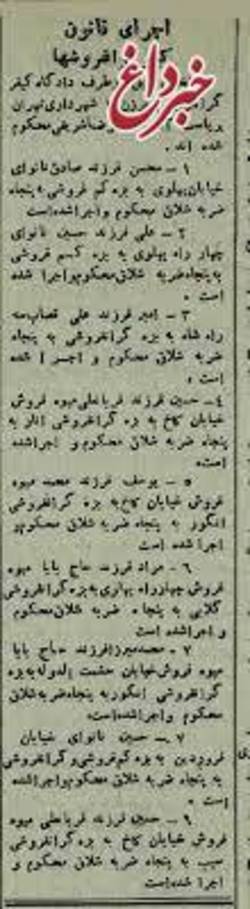 اجرای قانون
خبرداغ
گرانفروشها
طرف دادگاه کیفر
شهرداری تهران
محکوم
شده اند.
۱ - محسن فرزند صادق نانوای
خیابان پهلوی به بزه کم فروشی به پنجاه
ضربه شلاق محکوم و اجرا شده است
۲ - علی فرزند حسین نانوای
چهار راه پهلوی به بزه کسم فروشی
به پنجاه ضربه شلاق محکوم و اجرا شده
است .
۳ - امیر فرزند علی قصاب سه
راه شاه به بزه گرانفروشی به پنجاه
ضربه شلاق محکوم و اجرا شده
است .
٤ - حسین فرزند قربانعلی میوه فروش
خیابان کاخ به بزه گرانفروشی انار به
پنجاه ضربه شلاق محکوم و اجرا شده
است.
٥ - یوسف فرزند محمد میوه
فروش خیابان کاخ به بزه گرانفروشی
انگور به پنجاه ضربه شلاق محکوم و
اجرا شده است
٦ - مراد فرزند حاج بابا میوه
فروش چهارراه پهلوی به بزه گرانفروشی
گلابی به پنجاه ضربه شلاق محکوم
و اجرا شده است
۷ - محمد میرزا فرزند حاج بابا
میوه فروش خیابان حشمت الدوله به بزه
گرانفروشی انگور به پنجاه ضربه شلاق
محکوم و اجرا شده است.
۷ - حسین نانوای خیابان
فروردین به بزه کم فروشی و گرانفروشی
به پنجاه ضربه شلاق محکوم و اجرا شده
است .
۹ - حسین فرزند قربانعلی میوه
فروش خیابان کاخ به بزه گرانفروشی
سیب به پنجاه ضربه شلاق محکوم و
اجرا شده است